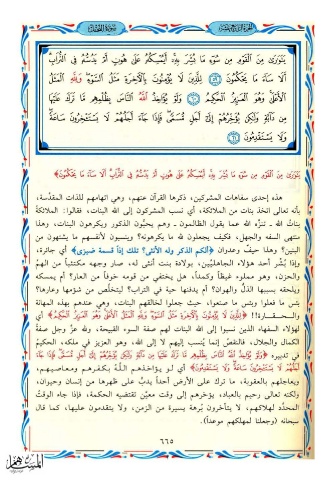 يَتَوَارَىٰ مِنَ الْقَوْمِ مِن سُوءِ مَا بُشِّرَ بِهِ أَيُمْسِكُهُ عَلَىٰ هُونٍ أَمْ يَدُسُّهُ فِي التُّرَابِ
أَلَا سَاءَ مَا يَحْكُمُونَ ٥٩ لِلَّذِينَ لَا يُؤْمِنُونَ بِالْآخِرَةِ مَثَلُ السَّوْءِ وَلِلَّهِ الْمَثَلُ
الْأَعْلَىٰ وَهُوَ الْعَزِيزُ الْحَكِيمُ ٦٠ وَلَوْ يُؤَاخِذُ اللَّهُ النَّاسَ بِظُلْمِهِم مَّا تَرَكَ عَلَيْهَا
مِن دَابَّةٍ وَلَٰكِن يُؤَخِّرُهُمْ إِلَىٰ أَجَلٍ مُّسَمًّى فَإِذَا جَاءَ أَجَلُهُمْ لَا يَسْتَأْخِرُونَ سَاعَةً
وَلَا يَسْتَقْدِمُونَ ٦١
﴿يَتَوَارَىٰ مِنَ الْقَوْمِ مِن سُوءِ مَا بُشِّرَ بِهِ أَيُمْسِكُهُ عَلَىٰ هُونٍ أَمْ يَدُسُّهُ فِي التُّرَابِ أَلَا سَاءَ مَا يَحْكُمُونَ﴾
هذه إحدى سفاهات المشركين، ذكرها القرآن عنهم، وهي اتهامهم للذات المقدسة،
بأنه تعالى اتخذ بنات من الملائكة، أي نسب المشركون إلى الله البنات، فقالوا: الملائكة
بناتُ الله ـ تنزَّه الله عما يقول الظالمون ـ وهم يحبُّون الذكور ويكرهون البنات، وهذا
منتهى السفه والجهل، فكيف يجعلون لله ما يكرهونه؟ وينسبون لأنفسهم ما يشتهون من
البنين؟ وهذا حيفٌ وعدوان ﴿ألكم الذكر وله الأنثى؟ تلك إذاً قسمة ضيزى﴾ أي جائرة،
وإذا بُشِّر أحد هؤلاء الجاهليِّين، بولادة بنت أنثى له، صار وجهه مكتئباً من الهمّ
والحزن، وهو مملوء غيظاً وكمداً، هل يختفي من قومه خوفاً من العار؟ أم يمسكه
ويلحقه بسببها الذلُّ والهوان؟ أم يدفنها حية في التراب؟ ليتخلَّص من شؤمها وعارها؟
بئس ما فعلوا وبئس ما صنعوا، حيث جعلوا لخالقهم البنات، وهي عندهم بهذه المهانة
والحقارة!! ﴿لِلَّذِينَ لَا يُؤْمِنُونَ بِالْآخِرَةِ مَثَلُ السَّوْءِ وَلِلَّهِ الْمَثَلُ الْأَعْلَىٰ وَهُوَ الْعَزِيزُ الْحَكِيمُ﴾ أي
لهؤلاء السفهاء الذين نسبوا إلى الله البنات لهم صفة السوء القبيحة، ولله عزَّ وجل صفةُ
الكمال والجلال، فالنقصُ إنما يُنسب إليهم لا إلى الله، وهو العزيز في ملكه، الحكيمُ
في تدبيره ﴿وَلَوْ يُؤَاخِذُ اللَّهُ النَّاسَ بِظُلْمِهِم مَّا تَرَكَ عَلَيْهَا مِن دَابَّةٍ وَلَٰكِن يُؤَخِّرُهُمْ إِلَىٰ أَجَلٍ مُّسَمًّى فَإِذَا جَاءَ
أَجَلُهُمْ لَا يَسْتَأْخِرُونَ سَاعَةً وَلَا يَسْتَقْدِمُونَ﴾ أي لو يؤاخذهم اللهُ بكفرهم ومعاصيهم،
ويعاجلهم بالعقوبة، ما ترك على الأرض أحداً يدبُّ على ظهرها من إنسان وحيوان،
ولكنه تعالى رحيم بالعباد، يؤخرهم إلى وقت معيَّن تقتضيه الحكمة، فإذا جاء الوقتُ
المحدَّد لهلاكهم، لا يتأخرون بُرهة يسيرة من الزمن، ولا يتقدمون عليها، كما قال
سبحانه ﴿وجعلنا لمهلكهم موعداً﴾.
٦٦٥